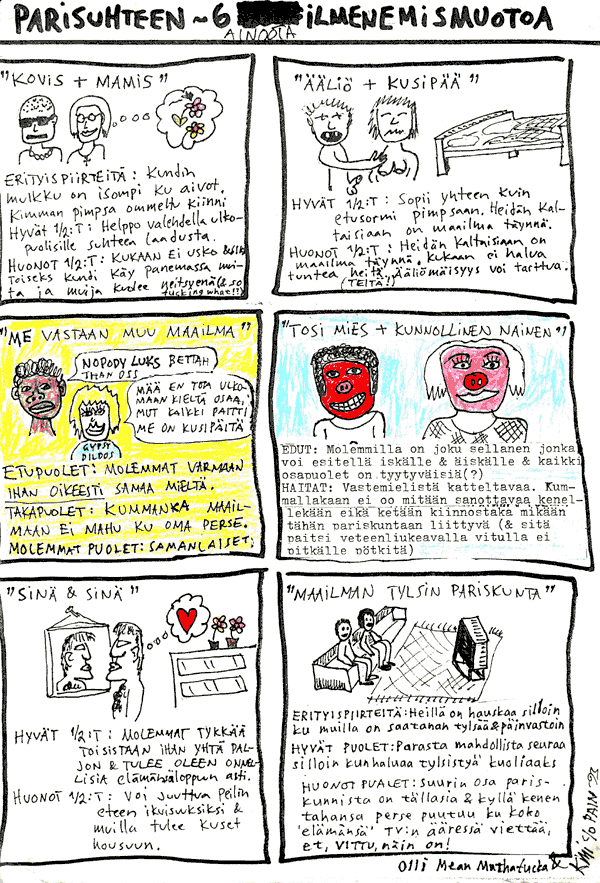 PARISUHTEEN ~6 ILMENEMISMUOTOA
AINOOTA
"KOVIS + MAMIS"
ERITYISPIIRTEITÄ: Kundin
mulkku on isompi ku aivot.
Kimman pimpsa ommeltu kiinni
HYVÄT 1/2:T: Helppo valehdella ulko-
puolisille suhteen laadusta.
HUONOT 1/2:T: KUKAAN EI USKO &
Toiseks kundi käy panemassa mui-
ta ja muija kuolee neitsyenä (& so
fucking what!!)
"ÄÄLIÖ + KUSIPÄÄ"
HYVÄT 1/2:T: Sopii yhteen kuin
etusormi pimpsaan. Heidän kal-
taisiaan on maailma täynnä.
HUONOT 1/2:T: Heidän kaltaisiaan on
maailma täynnä. Kukaan ei halua
tuntea heitä. Ääliömäisyys voi tarttua.
(TEITÄ!)
"ME VASTAAN MUU MAAILMA"
NOPODY LUKS BETTAH
THAN OSS
MÄÄ EN TOTA ULKO-
MAAN KIELTÄ OSAA,
MUT KAIKKI PAITTI
ME ON KUSIPÄITÄ
GYPSY
DILDOS
ETUPUOLET: MOLEMMAT VARMAAN
IHAN OIKEESTI SAMAA MIELTÄ.
TAKAPUOLET: KUMMANKA MAAIL-
MAAN EI MAHU KU OMA PERSE.
MOLEMMAT PUOLET: SAMANLAISET;
"TOSI MIES + KUNNOLLINEN NAINEN"
EDUT: Molemmilla on joku sellanen jonka
voi esitellä iskälle & äiskälle & kaikki
osapuolet on tyytyväisiä(?)
HAITAT: Vastemielistä katteltavaa. Kum-
mallakaan ei oo mitään sanottavaa kenel-
lekään eikä ketään kiinnostaka mikään
tähän pariskuntaan liittyvä (& sitä
paitsi veteenliukeavalla vitulla ei
pitkälle pötkitä)
"SINÄ & SINÄ"
HYVÄT 1/2:T: MOLEMMAT TYKKÄÄ
TOISISTAAN IHAN YHTÄ PAL-
JON & TULEE OLEEN ONNEL-
LISIA elämänsä loppun asti.
HUONOT 1/2:T: Voi juuttua peilin
eteen ikuisuksiksi &
muilla tulee kuset
housuun.
"MAAILMAN TYLSIN PARISKUNTA"
ERITYISPIIRTEITÄ: Heillä on hauskaa silloin
ku muilla on saatanan tylsää & päinvastoin
HYVÄT PUOLET: Parasta mahdollista seuraa
silloin kun haluaa tylsistyä kuoliaaks
HUONOT PUALET: Suurin osa paris-
kunnista on tällasia & kyllä kenen
tahansa perse puutuu ku koko
'elämänsä' TV:n ääressä viettää,
et, VITTU, näin on!
Olli Mean Muthafucka &